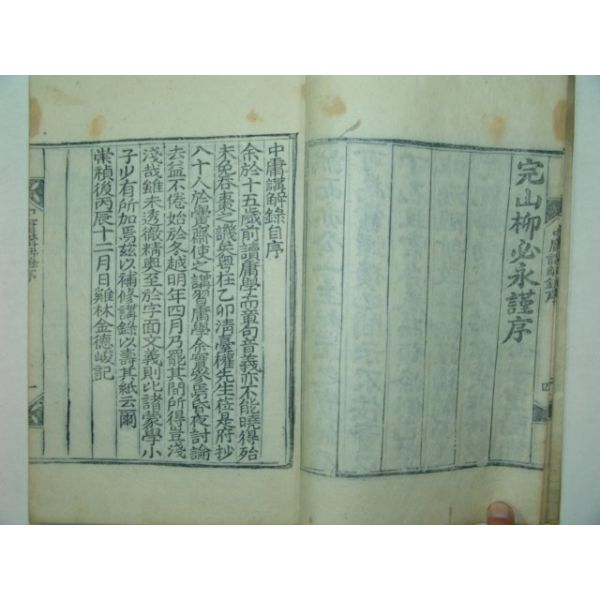 完山柳必永謹序
四
中庸講解錄自序
余於十五歲前讀庸學而章句音義亦不能曉得殆
未免吞棗之譏矣粵在乙卯淸臺權先生莅是府抄
八十人於黌齋使之講習庸學余實參焉昏夜討論
去益不倦始於冬越明年四月乃罷其間所得豈淺
淺哉雖未透徹精奧至於字面文義則比諸蒙學小
子少有所加焉玆以補修講錄以壽其紙云爾
崇禎後丙辰十二月日雞林金德峻記